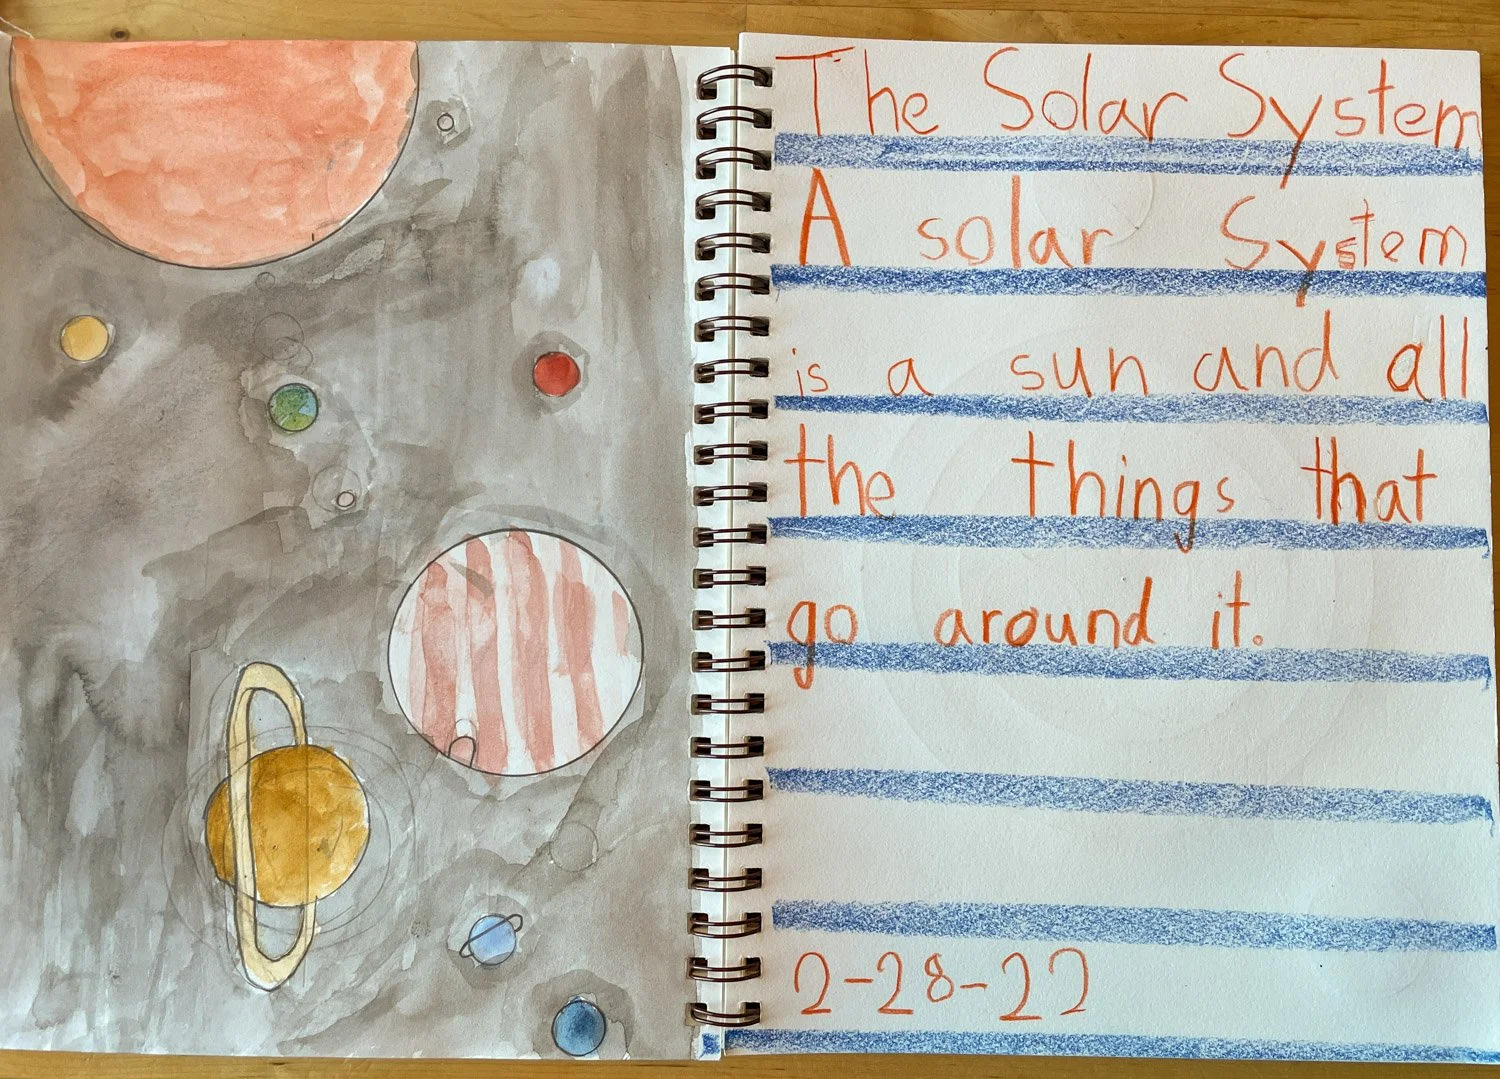 The Solar System
A solar System
is a sun and all
the things that
go around it.
2-28-22